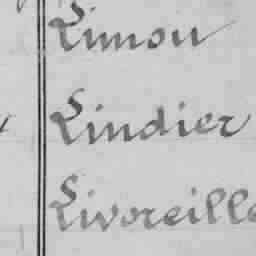 Limon
Lindier
Livoreille